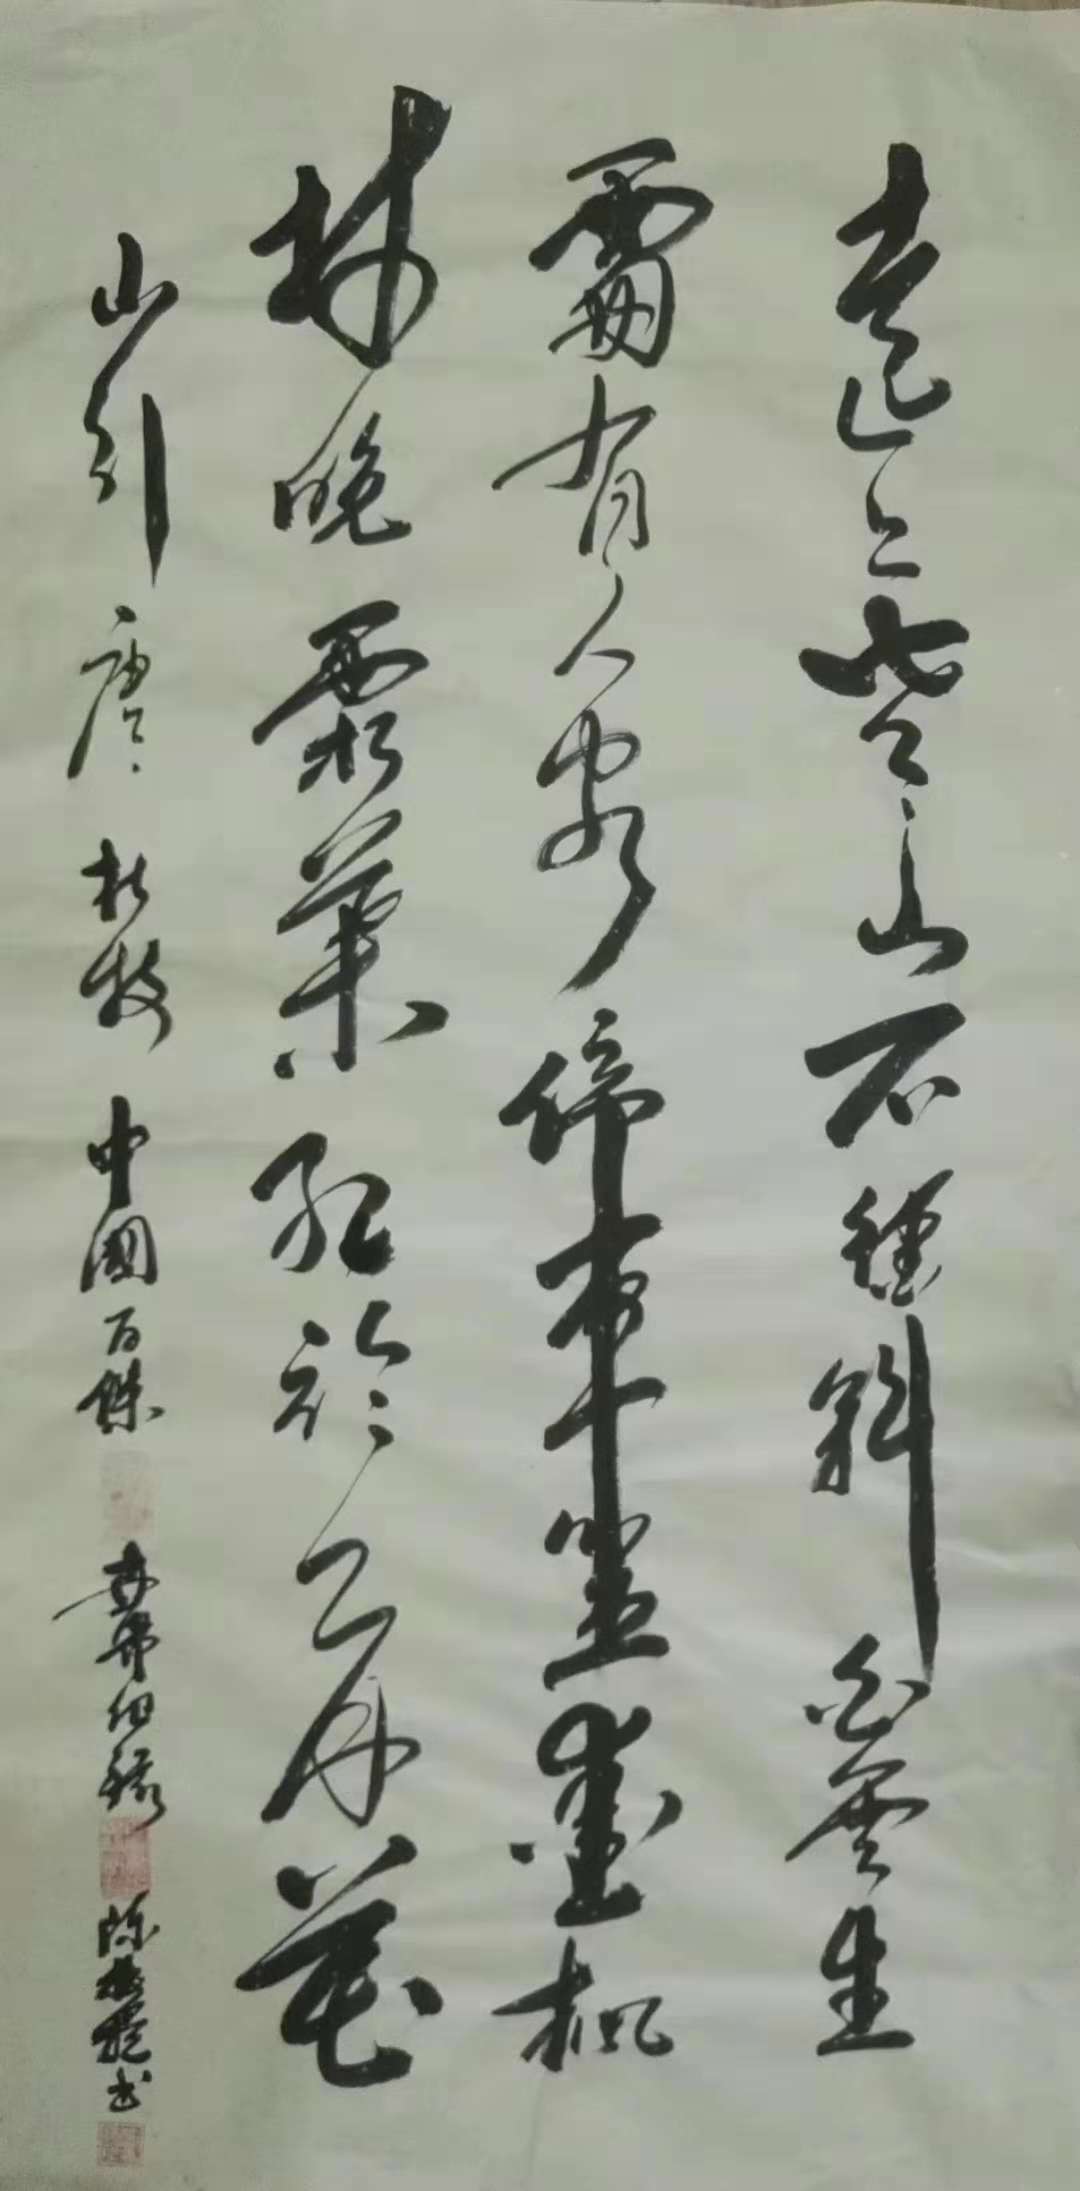 遠上寒山石徑斜白雲生
處有人家停車坐愛楓
林晚霜葉紅於二月花
山行 唐 杜牧 中國百傑 陳 書